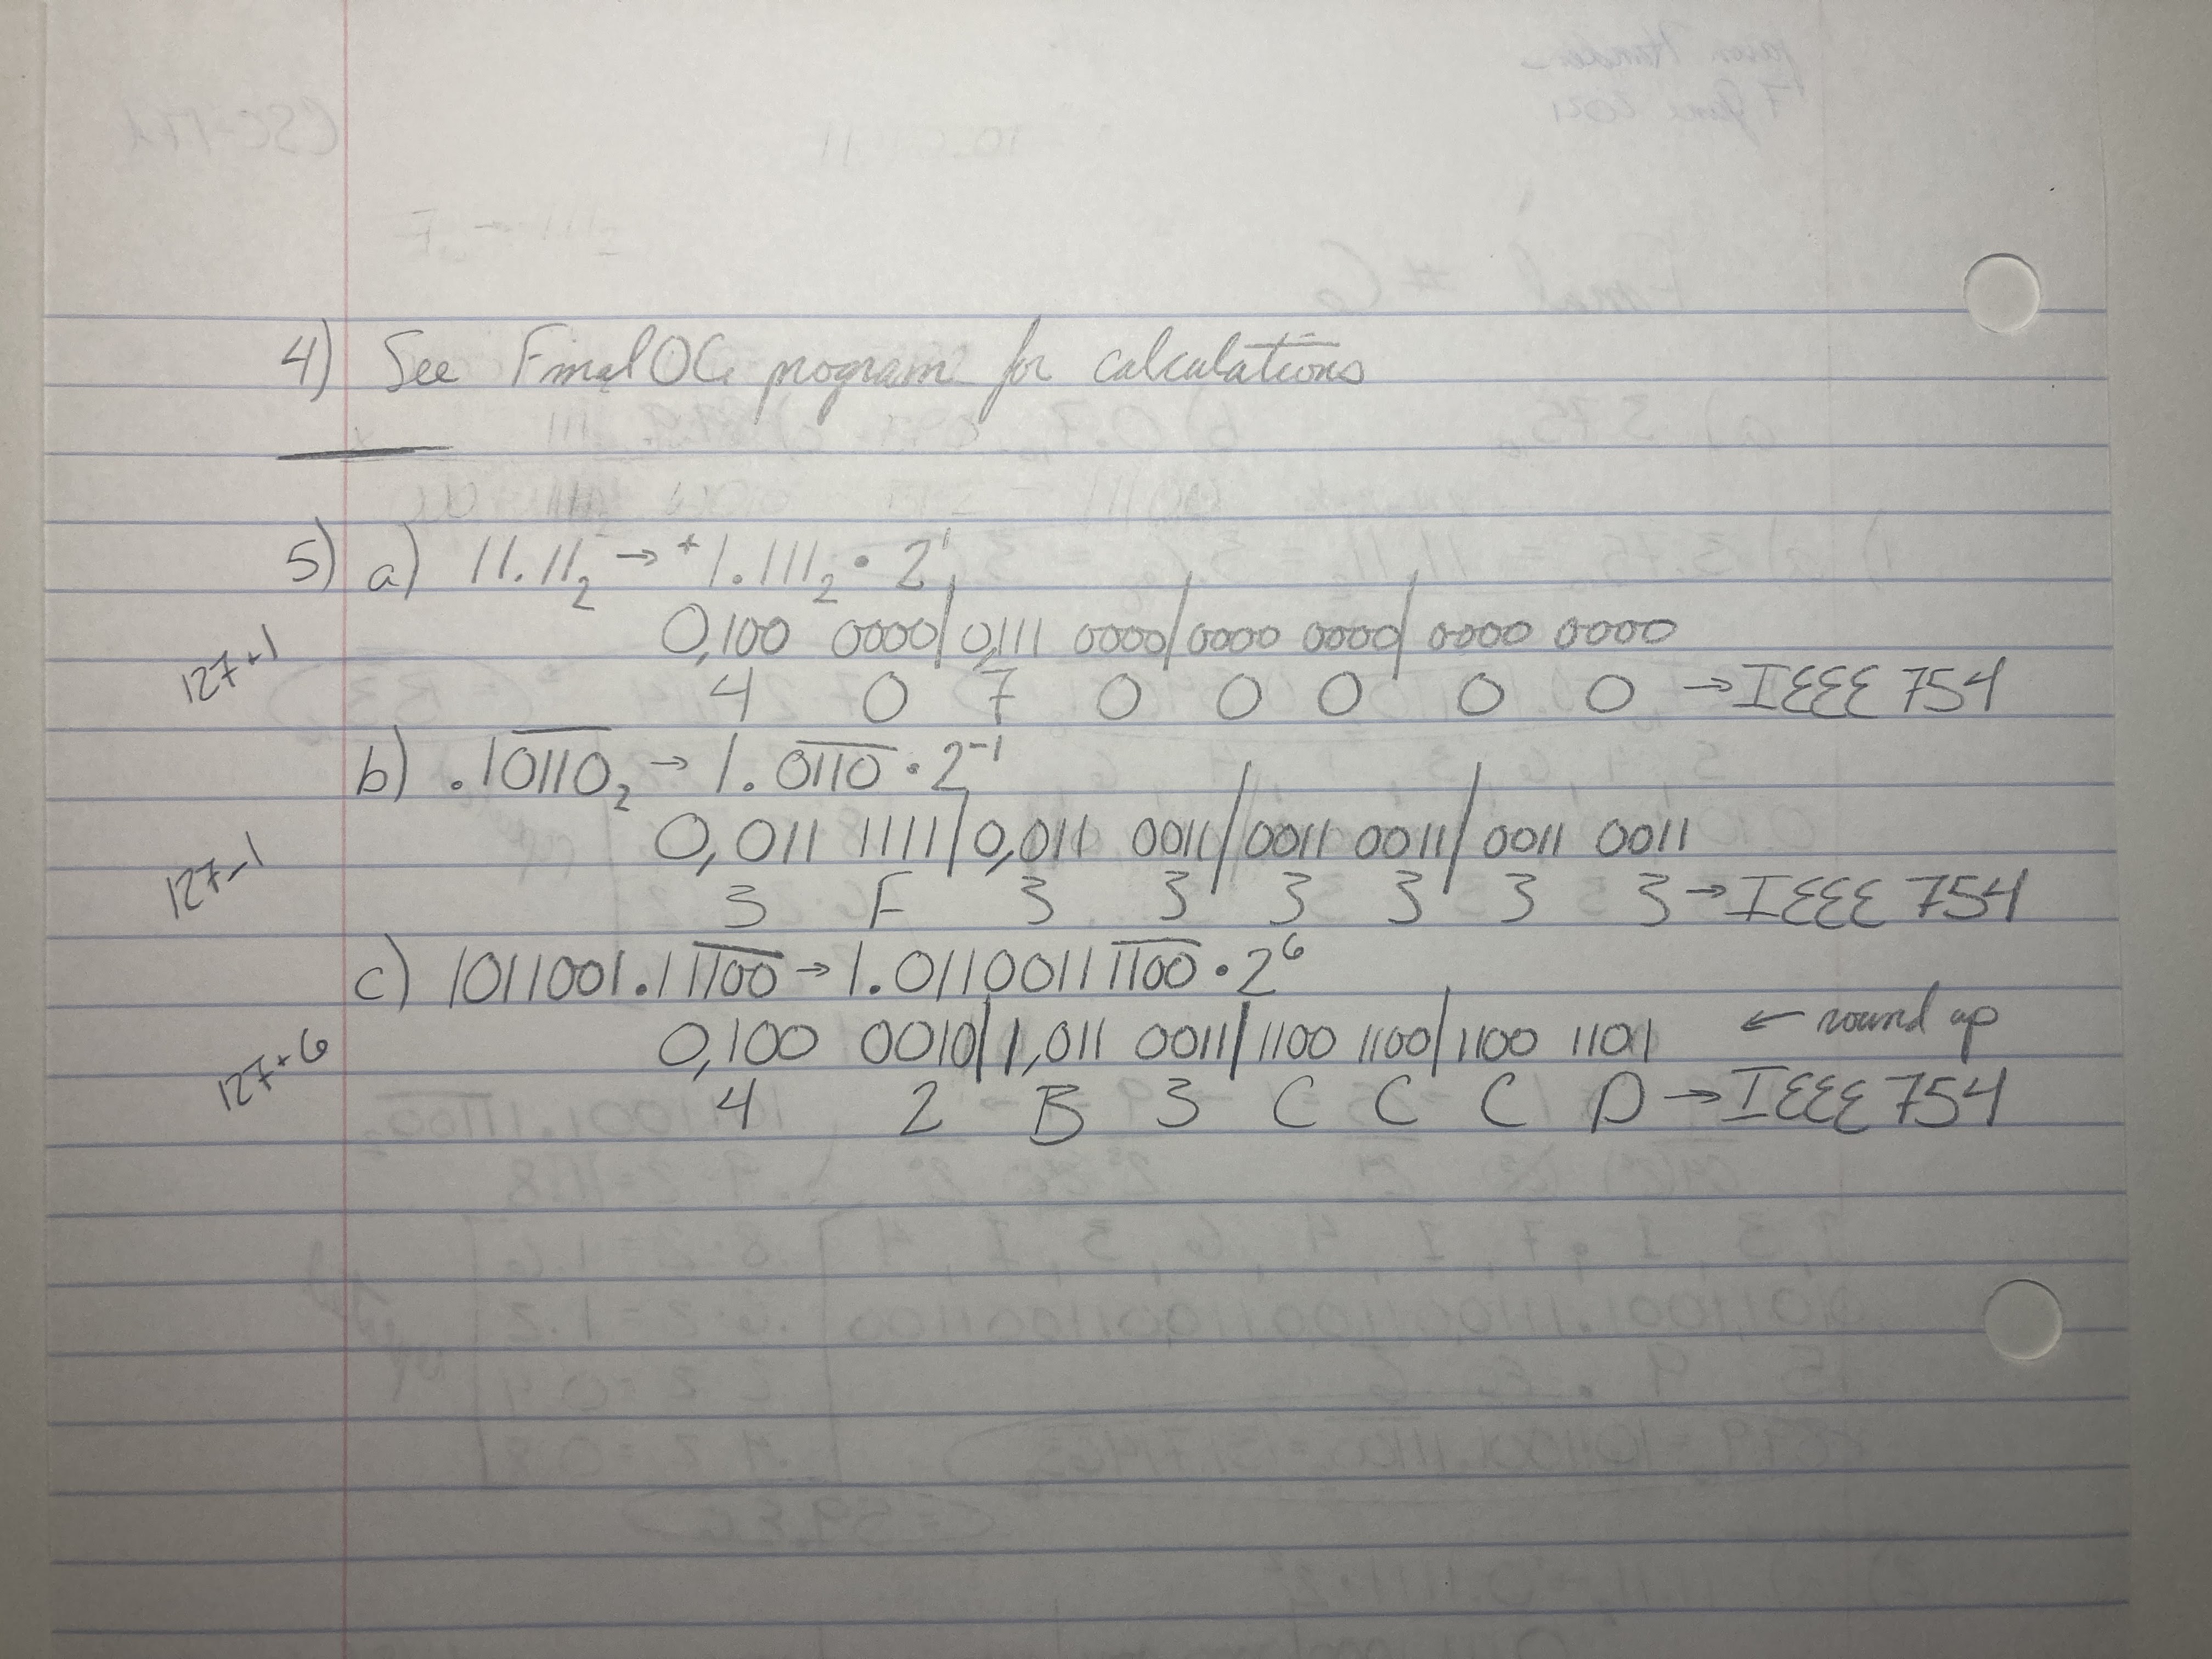 4) See Final OC program for calculations
5) a) 11.11₂ → +1.111₂ • 2¹
127+1
0,100 0000/0,111 0000/0000 0000/0000 0000
4 0 7 0 0 0 0 0 → IEEE 754
b) .10̅1̅1̅0̅₂ → 1.0̅1̅1̅0̅ • 2⁻¹
127-1
0,011 1111/0,011 0011/0011 0011/0011 0011
3 F 3 3 3 3 3 3 → IEEE 754
c) 1011001.11̅1̅0̅0̅ → 1.01100111̅1̅0̅0̅ • 2⁶
127+6
0,100 0010/1,011 0011/1100 1100/1100 1101 ← round up
4 2 B 3 C C C D → IEEE 754